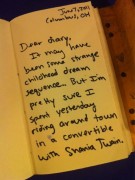 June 7, 2011
Columbus, OH
Dear diary,
It may have
been some strange
childhood dream
sequence. But I'm
pretty sure I
spent yesterday
riding around town
in a convertible
with Shania Twain.